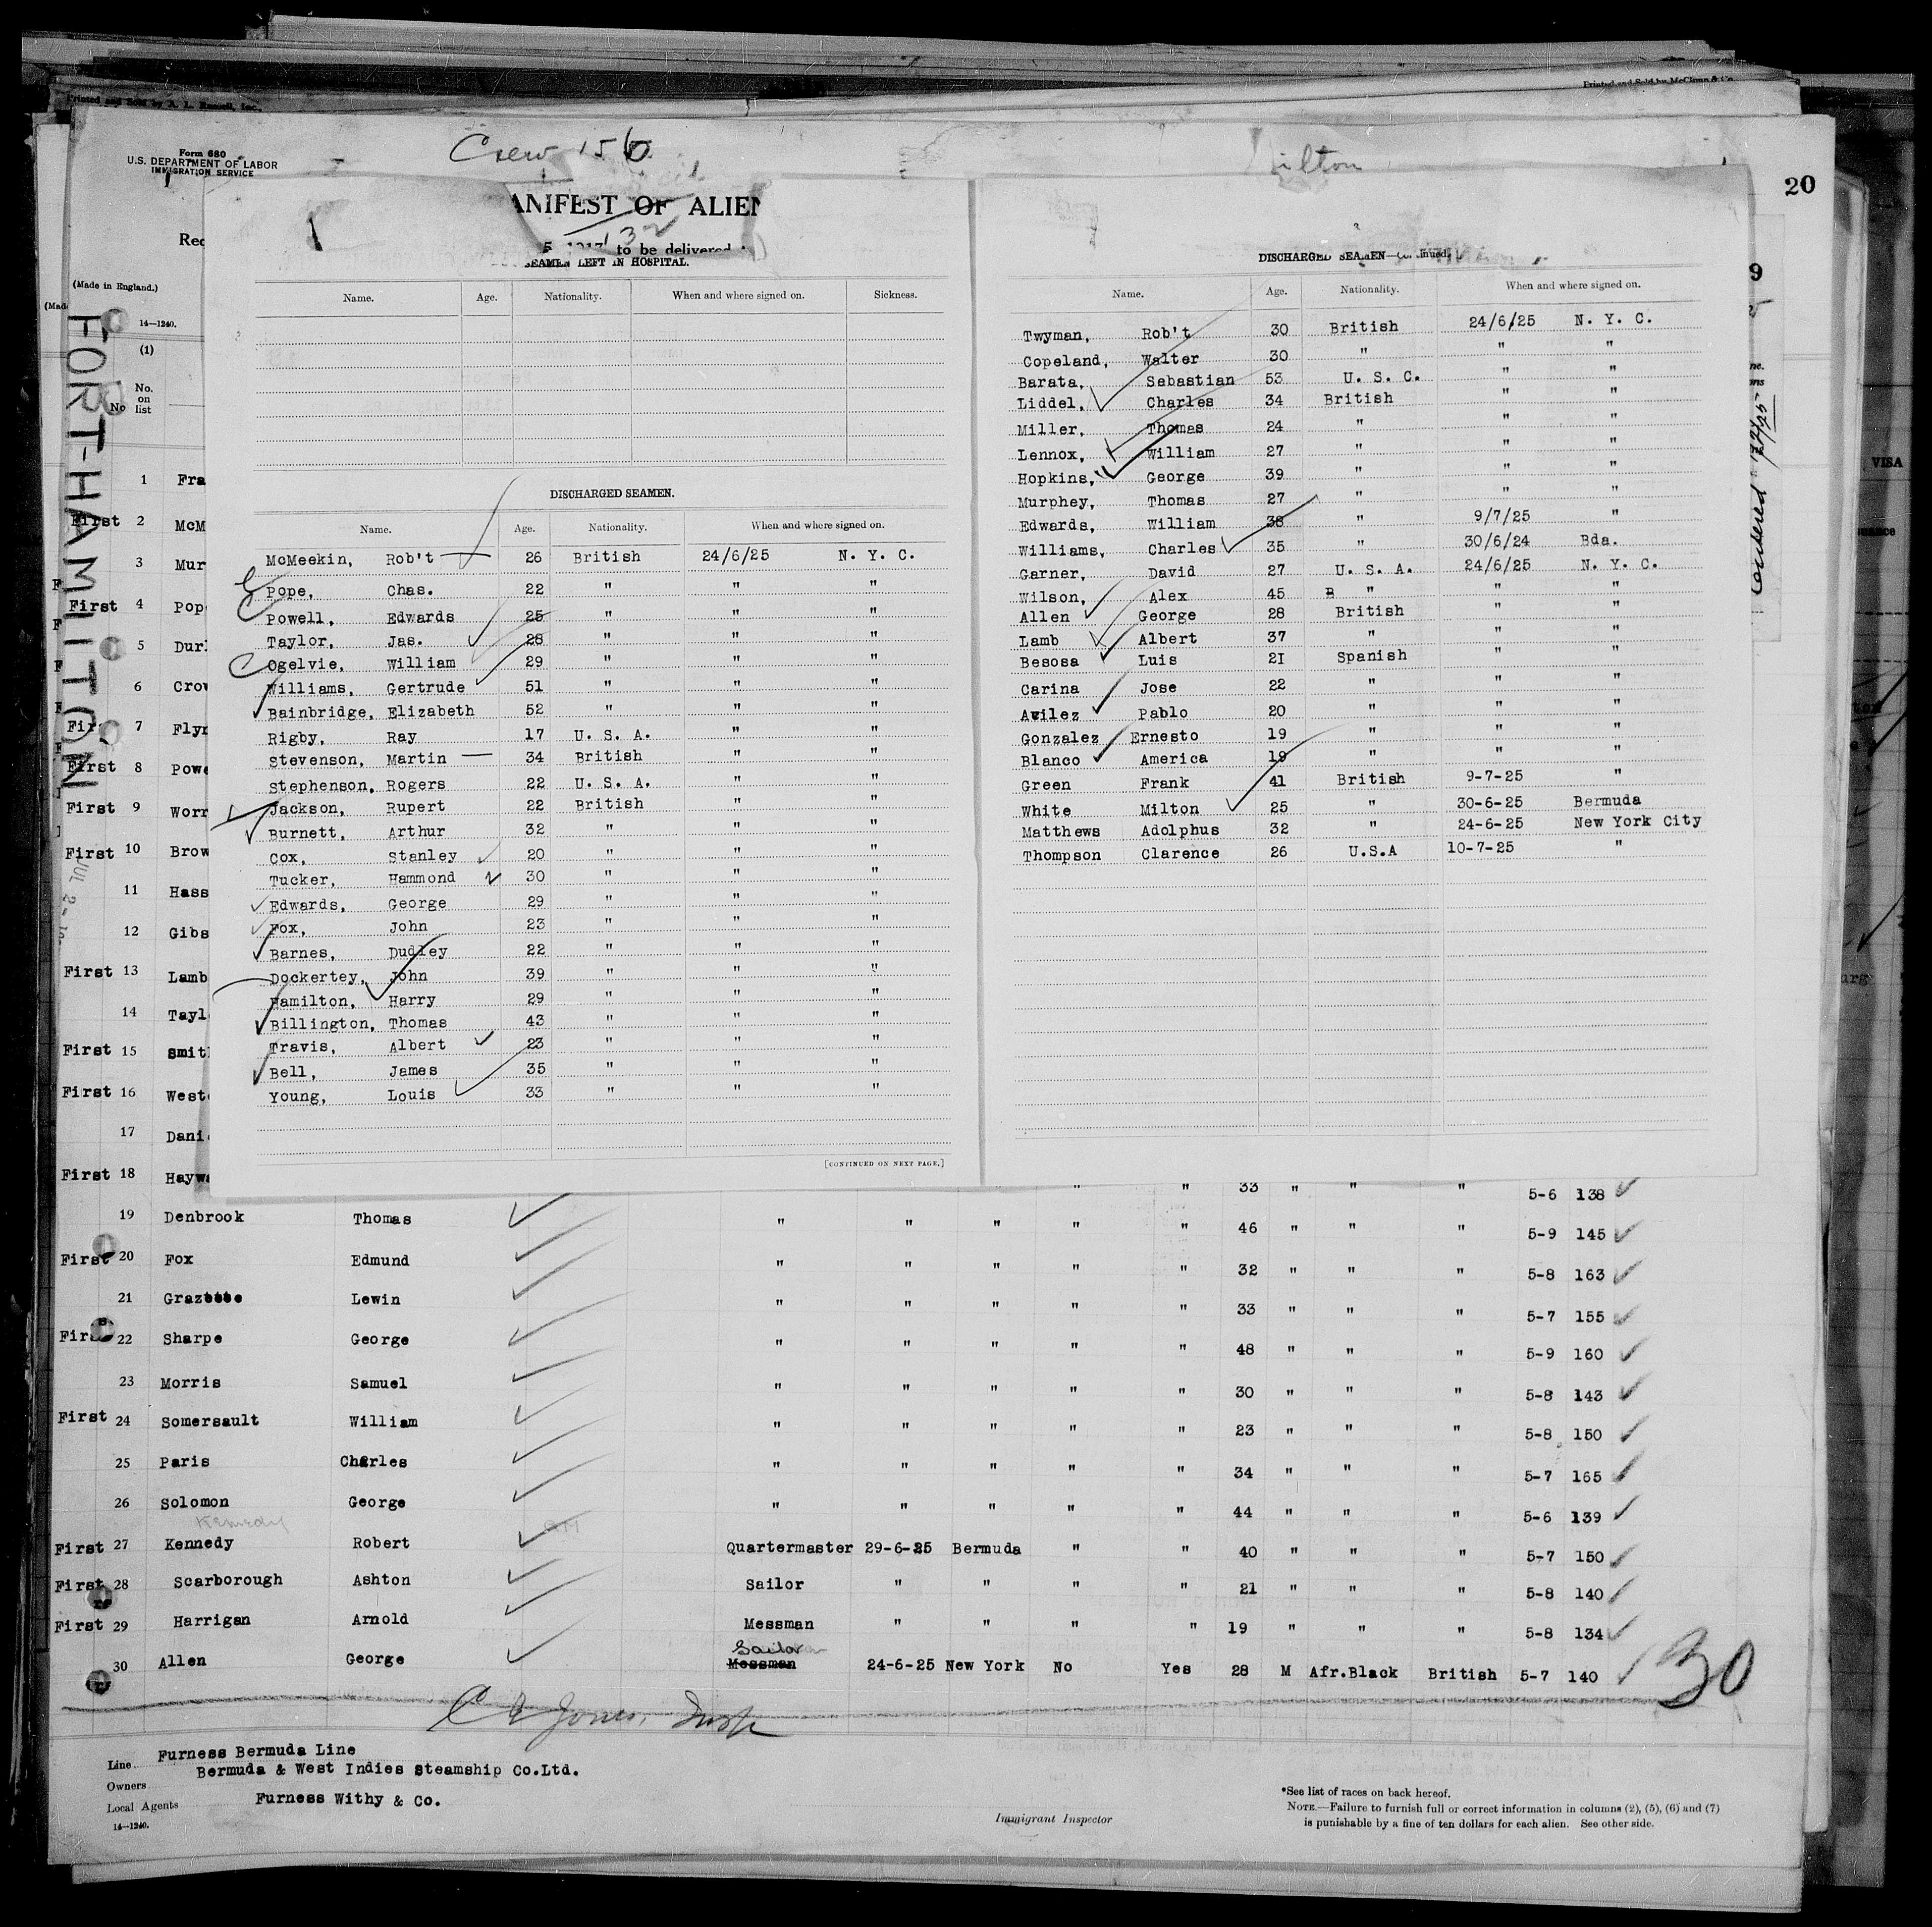 Printed and Sold by A. L. Russell, Inc.
Printed and Sold by McClunn & Co
Crew 156
ilton
Form 680
U.S. DEPARTMENT OF LABOR
IMMIGRATION SERVICE
20
ANIFEST OF ALIEN
132
5, 1917, to be delivered
Rec
9
(Made in England.)
14—1240.
(1)
No. on list
FORT-HAMILTON
VISA
SEAMEN LEFT IN HOSPITAL.
Name. Age. Nationality. When and where signed on. Sickness.
DISCHARGED SEAMEN.
Name. Age. Nationality. When and where signed on.
McMeekin, Rob't 26 British 24/6/25 N. Y. C.
Pope, Chas. 22 " " "
Powell, Edwards 25 " " "
Taylor, Jas. 28 " " "
Ogelvie, William 29 " " "
Williams, Gertrude 51 " " "
Bainbridge, Elizabeth 52 " " "
Rigby, Ray 17 U. S. A. " "
Stevenson, Martin 34 British " "
Stephenson, Rogers 22 U. S. A. " "
Jackson, Rupert 22 British " "
Burnett, Arthur 32 " " "
Cox, Stanley 20 " " "
Tucker, Hammond 30 " " "
Edwards, George 29 " " "
Fox, John 23 " " "
Barnes, Dudley 22 " " "
Dockertey, John 39 " " "
Hamilton, Harry 29 " " "
Billington, Thomas 43 " " "
Travis, Albert 23 " " "
Bell, James 35 " " "
Young, Louis 33 " " "
[CONTINUED ON NEXT PAGE.]
DISCHARGED SEAMEN—continued.
Name. Age. Nationality. When and where signed on.
Twyman, Rob't 30 British 24/6/25 N. Y. C.
Copeland, Walter 30 " " "
Barata, Sebastian 53 U. S. C. " "
Liddel, Charles 34 British " "
Miller, Thomas 24 " " "
Lennox, William 27 " " "
Hopkins, George 39 " " "
Murphey, Thomas 27 " " "
Edwards, William 38 " 9/7/25 "
Williams, Charles 35 " 30/6/24 Bda.
Garner, David 27 U. S. A. 24/6/25 N. Y. C.
Wilson, Alex 45 B " " "
Allen George 28 British " "
Lamb Albert 37 " " "
Besosa Luis 21 Spanish " "
Carina Jose 22 " " "
Avilez Pablo 20 " " "
Gonzalez Ernesto 19 " " "
Blanco America 19 " " "
Green Frank 41 British 9-7-25 "
White Milton 25 " 30-6-25 Bermuda
Matthews Adolphus 32 " 24-6-25 New York City
Thompson Clarence 26 U.S.A 10-7-25 "
1 Fra
First 2 McM
3 Mur
First 4 Pop
5 Dur
6 Crow
First 7 Flyn
First 8 Powe
First 9 Worr
First 10 Brow
11 Hass
12 Gibs
First 13 Lamb
14 Tayl
First 15 Smit
First 16 West
17 Dani
First 18 Hayw " " 33 " " " 5-6 138
19 Denbrook Thomas " " " " " 46 " " " 5-9 145
First 20 Fox Edmund " " " " " 32 " " " 5-8 163
21 Graz Lewin " " " " " 33 " " " 5-7 155
First 22 Sharpe George " " " " " 48 " " " 5-9 160
23 Morris Samuel " " " " " 30 " " " 5-8 143
First 24 Somersault William " " " " " 23 " " " 5-8 150
25 Paris Charles " " " " " 34 " " " 5-7 165
26 Solomon George " " " " " 44 " " " 5-6 139
Kennedy
First 27 Kennedy Robert Quartermaster 29-6-25 Bermuda " " 40 " " " 5-7 150
First 28 Scarborough Ashton Sailor " " " " 21 " " " 5-8 140
First 29 Harrigan Arnold Messman " " " " 19 " " " 5-8 134
Sailor
30 Allen George Messman 24-6-25 New York No Yes 28 M Afr.Black British 5-7 140
30
C E Jones, Insp
Line Furness Bermuda Line
Owners Bermuda & West Indies Steamship Co.Ltd.
Local Agents Furness Withy & Co.
14—1240.
Immigrant Inspector
*See list of races on back hereof.
NOTE.—Failure to furnish full or correct information in columns (2), (5), (6) and (7)
is punishable by a fine of ten dollars for each alien. See other side.